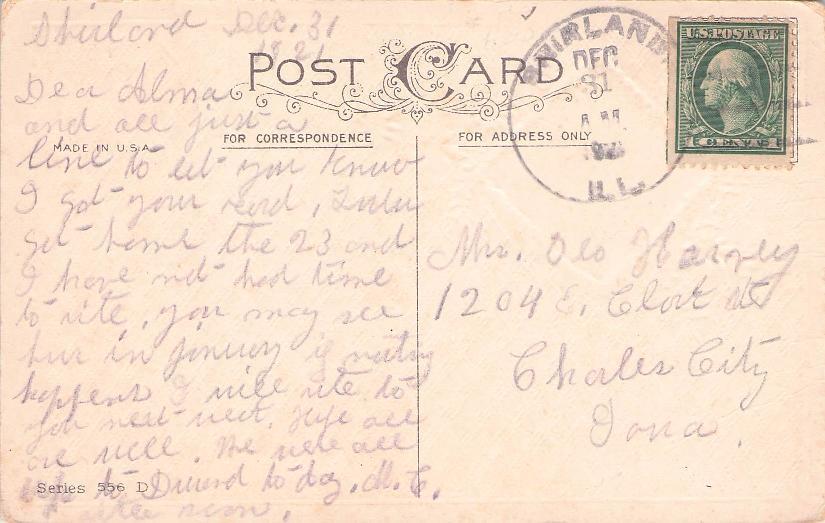 Shirland Dec. 31
1921
Dear Alma
and all just a
line to let you know
I got your card, Lulu
get home the 23 and
I have not had time
to rite, you may see
hur in Jinuery if noting
happens I will rite to
you next weet. Hope all
are well. We were all
to Durand to day. M. C.
rite soon.
POST CARD
FOR CORRESPONDENCE
FOR ADDRESS ONLY
MADE IN U.S.A.
SHIRLAND
DEC
31
A.M.
ILL.
U.S. POSTAGE
Mrs. Geo Harvey
1204 E. Clark St
Charles City
Iowa.
Series 556 D